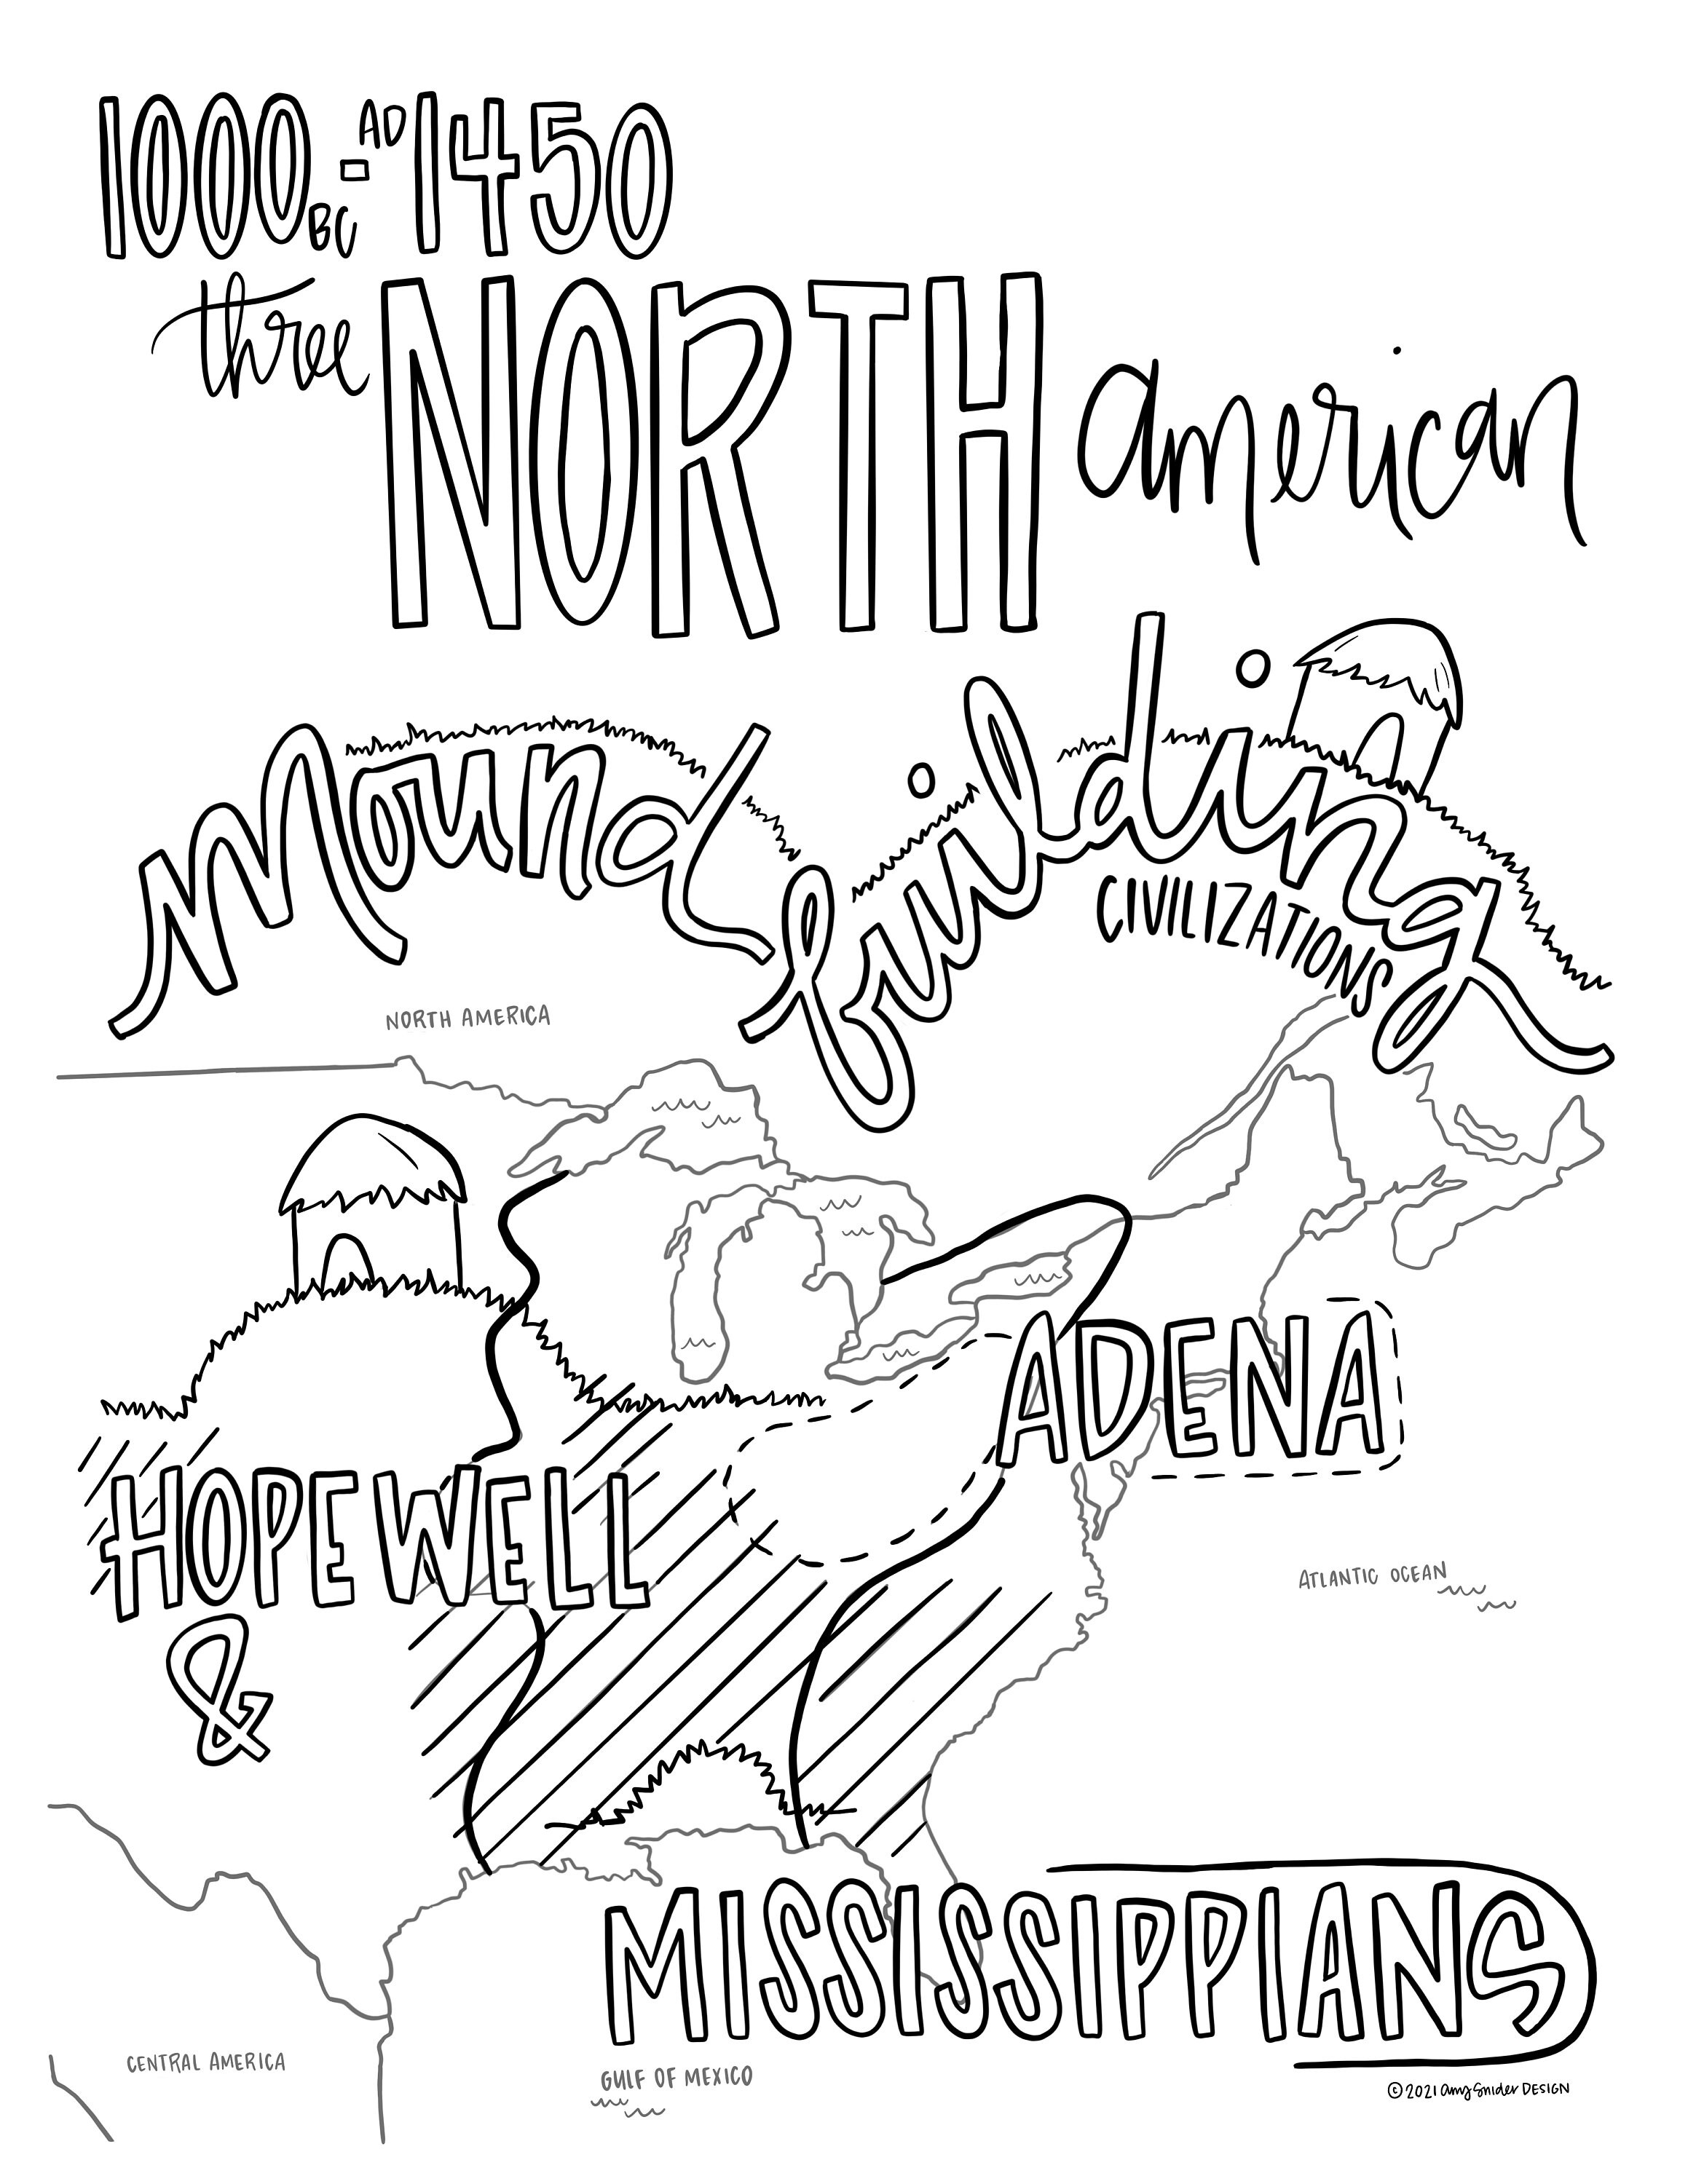 1000 BC - AD 1450
three NORTH american
Mound Building
CIVILIZATIONS
NORTH AMERICA
ADENA
HOPEWELL
&
ATLANTIC OCEAN
MISSISSIPPIANS
CENTRAL AMERICA
GULF OF MEXICO
© 2021 Amy Snider DESIGN